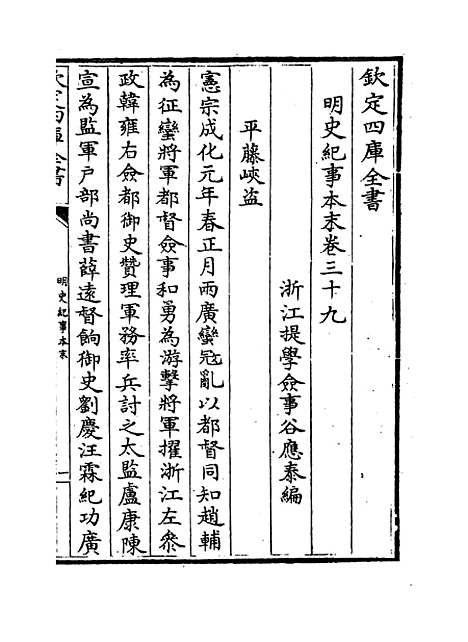 欽定四庫全書
明史紀事本末卷三十九
浙江提學僉事谷應泰編
平藤峽盗
憲宗成化元年春正月兩廣蠻冦亂以都督同知趙輔
為征蠻將軍都督僉事和勇為游擊將軍擢浙江左叅
政韓雍右僉都御史贊理軍務率兵討之太監盧康陳
宣為監軍户部尚書薛遠督餉御史劉慶汪霖紀功廣
欽定四庫全書
明史紀事本末
一